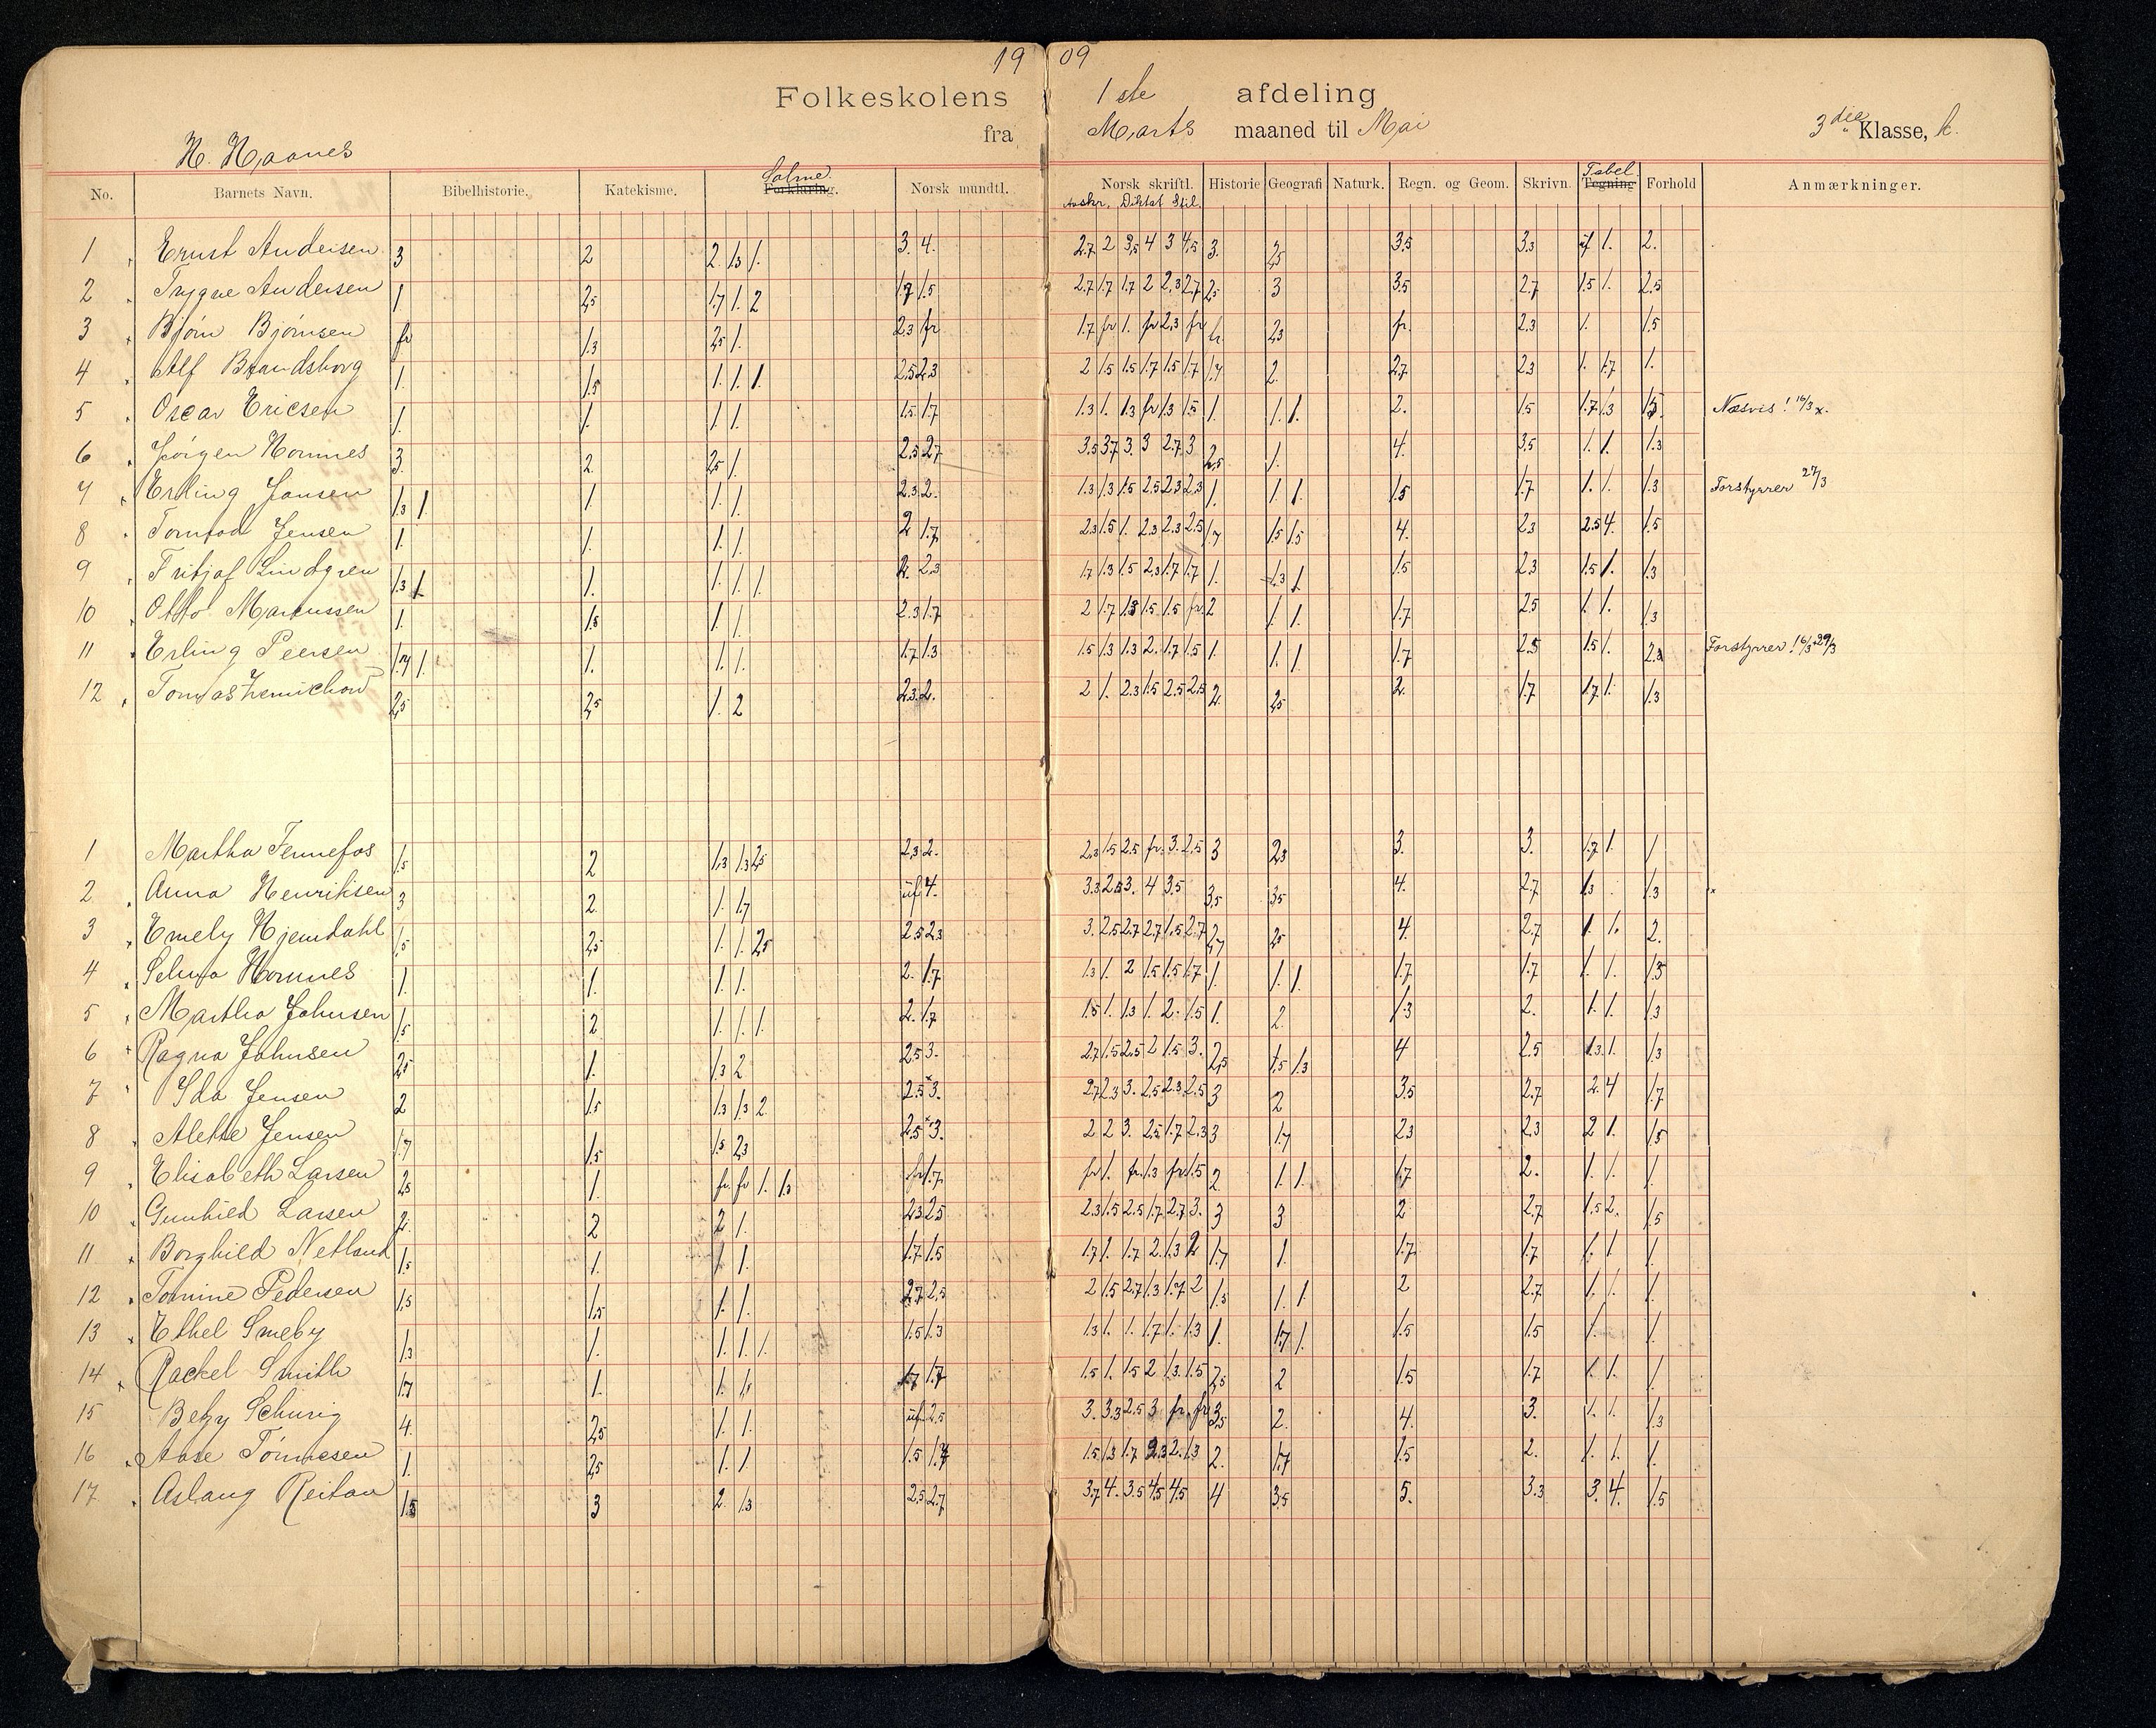 19 09
Folkeskolens 1ste afdeling
fra Marts maaned til Mai 3die Klasse, k.
H. Haanes
No. Barnets Navn. Bibelhistorie. Katekisme. Salme. Forklaring. Norsk mundtl. Norsk skriftl. Historie Geografi Naturk. Regn. og Geom. Skrivn. Tabel. Tegning Forhold Anmærkninger.
Avskr. Diktat Stil.
1 Ernst Andersen 3 2 2 1.3 1. 3. 4. 2.7 2 3.5 4 3 4.5 3. 2.5 3.5 3.3 uf 1. 2.
2 Trygve Andersen 1 2.5 1.7 1. 2 1.7 1.5 2.7 1.7 1.7 2 2.3 2.7 2.5 3 3.5 2.7 1.5 1. 2.5
3 Bjørn Bjørnsen fr 1.3 2.5 1. 2.3 fr 1.7 fr 1. fr 2.3 fr 2.3 fr. 2.3 1. 1.5
4 Alf Brandsborg 1. 1.5 1. 1. 1. 2.5 2.3 2 1.5 1.5 1.7 1.5 1.7 1.7 2. 2.7 2.3 1. 1.7 1.
5 Oscar Ericsen 1. 1. 1. 1. 1.5 1.7 1.3 1. 1.3 fr 1.3 1.5 1. 1. 1. 2. 1.5 1.7 1.3 1.5 Næsvis! 16/3 x.
6 Jørgen Homnes 3. 2. 2.5 1. 2.5 2.7 3.5 3.7 3. 3 2.7 3 2.5 1. 4. 3.5 1. 1. 1.3
7 Erling Jansen 1.3 1. 1. 1. 1. 2.3 2. 1.3 1.3 1.5 2.5 2.3 2.3 1. 1. 1. 1.5 1.7 1. 1. 1.3 Forstyrrer 27/3
8 Tormod Jensen 1. 1. 1. 1. 2 1.7 2.3 1.5 1. 2.3 2.3 2.5 1.7 1.5 1.5 4. 2.3 2.5 4. 1.5
9 Fritjof Lindgren 1.3 1 1. 1. 1. 1. 2. 2.3 1.7 1.3 1.5 2.3 1.7 1.7 1. 1.3 1. 1.5 2.3 1.5 1. 1.3
10 Otto Markussen 1. 1.5 1. 1. 2.3 1.7 2 1.7 1.3 1.5 1.5 fr. 2 1. 1. 1.7 2.5 1. 1. 1.3
11 Erling Peersen 1.7 1. 1. 1. 1. 1.7 1.3 1.5 1.3 1.3 2. 1.7 1.5 1. 1. 1. 1.7 2.5 1.5 1. 2.3 Forstyrrer! 16/3 + 29/3
12 Tomas 2.5 2.5 1. 2 2.3 2. 2 1. 2.3 1.5 2.5 2.5 2. 2.5 2. 1.7 1.7 1. 1.3
1 Martha Fennefos 1.5 2 1.3 1.3 2.5 2.3 2. 2.3 1.5 2.5 fr. 3. 2.5 3 2.3 3. 3. 1.7 1. 1
2 Anna Henriksen 3 2. 1. 1.7 uf 4. 3.3 2.5 3. 4 3.5 3.5 3.5 4. 2.7 1.3 1.3
3 Emely Hjemdahl 1.5 2.5 1. 1. 2.5 2.5 2.3 3. 2.5 2.7 2.7 1.5 2.7 2.7 2.5 4. 2.7 1. 1. 2.
4 Selma Homnes 1. 1. 1. 1. 2. 1.7 1.3 1. 2 1.5 1.5 1.7 1. 1. 1. 1.7 1.7 1. 1. 1.3
5 Martha Johnsen 1.5 2. 1. 1. 1. 2. 1.7 1.5 1. 1.3 1. 2. 1.5 1. 2. 1.3 2. 1. 1. 1.3
6 Ragna Johnsen 2.5 1. 1.3 2 2.5 3. 2.7 1.5 2.5 2 1.5 3. 2.5 1.5 1.3 4 2.5 1.3 1. 1.3
7 Ida Jensen 2 1.5 1.3 1.3 2 2.5 x 3. 2.7 2.3 3. 2.5 2.3 2.5 3 2 3.5 2.7 2. 4 1.7
8 Alette Jensen 1.7 1.5 1.5 2.3 2.5 x 3. 2 2 3. 2.5 1.7 2.3 3 1.7 2.3 2.3 2 1. 1.5
9 Elisabeth Larsen 2.5 1. fr. fr 1. 1.3 fr 1.7 fr 1. fr. 1.3 fr 1.5 2. 1. 1. 1.7 2. 1. 1. 1.
10 Gunhild Larsen 2. 2 2 1. 2.3 2.5 2.3 1.5 2.5 1.7 2.7 3. 3 3 2 2.7 1.5 2. 1.5
11 Borghild Netland 1.5 1. 1 1. 1.7 1.5 1.7 1. 1.7 2. 1.3 2 1.7 1. 1.7 1.7 1. 1 1.
12 Tomine Pedersen 1.5 1.5 1. 1. 2.7 2.5 2 1.5 2.7 1.3 1.7 2 1.3 1. 1. 2 2.7 1. 1. 1.
13 Ethel Smeby 1.3 1. 1. 1. 1. 1.5 1.3 1.3 1. 1. 1.7 1. 1.3 1. 1.7 1. 1.5 1.5 1. 1.
14 Rackel Smith 1.7 1. 1. 1. 1.7 1.7 1.5 1. 1.5 2 1.3 1.5 2.5 2 1.5 1.7 1. 1. 1
15 Betzy Schurig 4. 2.5 1. 1. uf. 2.5 3. 3.3 2.5 3 fr. fr 3.5 2. 4. 3. 1. 1. 1.3
16 Aase Tønnesen 1. 2.5 1. 1. 1.5 1.7 1.5 1.3 1.7 2.3 2. 1.3 2. 1.7 1.5 2. 1. 1. 1.
17 Aslaug Reitan 1.5 3 2. 1.3 2.5 2.7 3.7 4. 3.5 4.5 4.5 4 3.5 5. 3.3 3. 4. 1.5